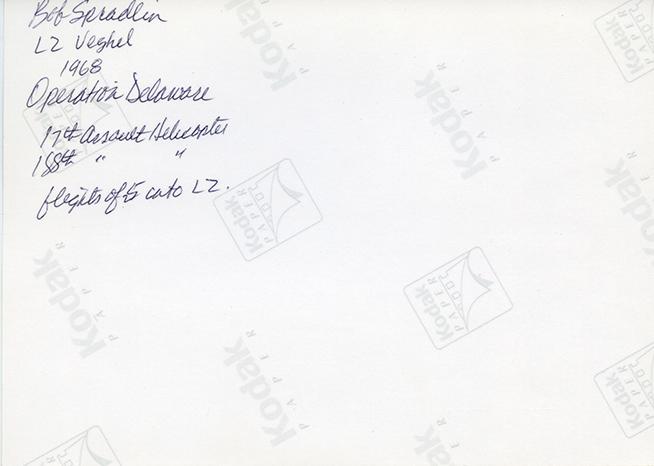 Bob Spradlin
LZ Veghel
1968
Operation Delaware
17th Assault Helicopter
188th " "
flights of 5 into LZ.
Kodak
PAPER
Kodak
PAPER
Kodak
PAPER
Kodak
PAPER
Kodak
PAPER
Kodak
PAPER
Kodak
PAPER
Kodak
PAPER
Kodak
PAPER
Kodak
PAPER